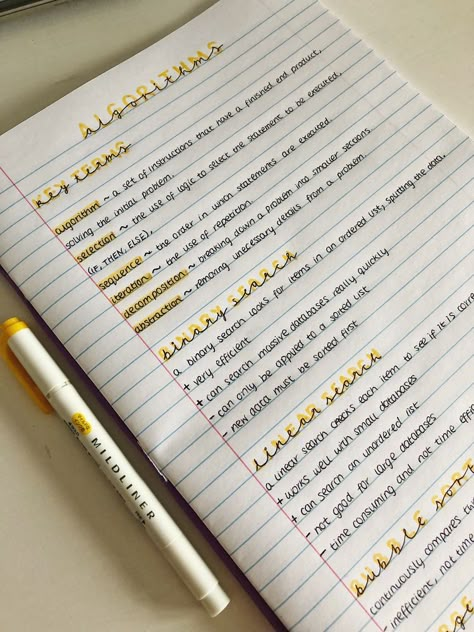 ALGORITHMS
algorithms
KEY TERMS
key terms
algorithm ~ a set of instructions that have a finished end product,
solving the initial problem.
selection ~ the use of logic to select the statement to be executed,
(IF, THEN, ELSE).
sequence ~ the order in which statements are executed.
iteration ~ the use of repetition.
decomposition ~ breaking down a problem into smaller sections
abstraction ~ removing unnecessary details from a problem.
BINARY SEARCH
binary search
a binary search looks for items in an ordered list, splitting the data.
+ very efficient
+ can search massive databases really quickly
- can only be applied to a sorted list
- new data must be sorted first
LINEAR SEARCH
linear search
a linear search checks each item to see if it is corre
+ works well with small databases
+ can search an unordered list
- not good for large databases
- time consuming and not time effi
BUBBLE SORT
bubble sort
continuously compares tw
- inefficient, not time
MILDLINER